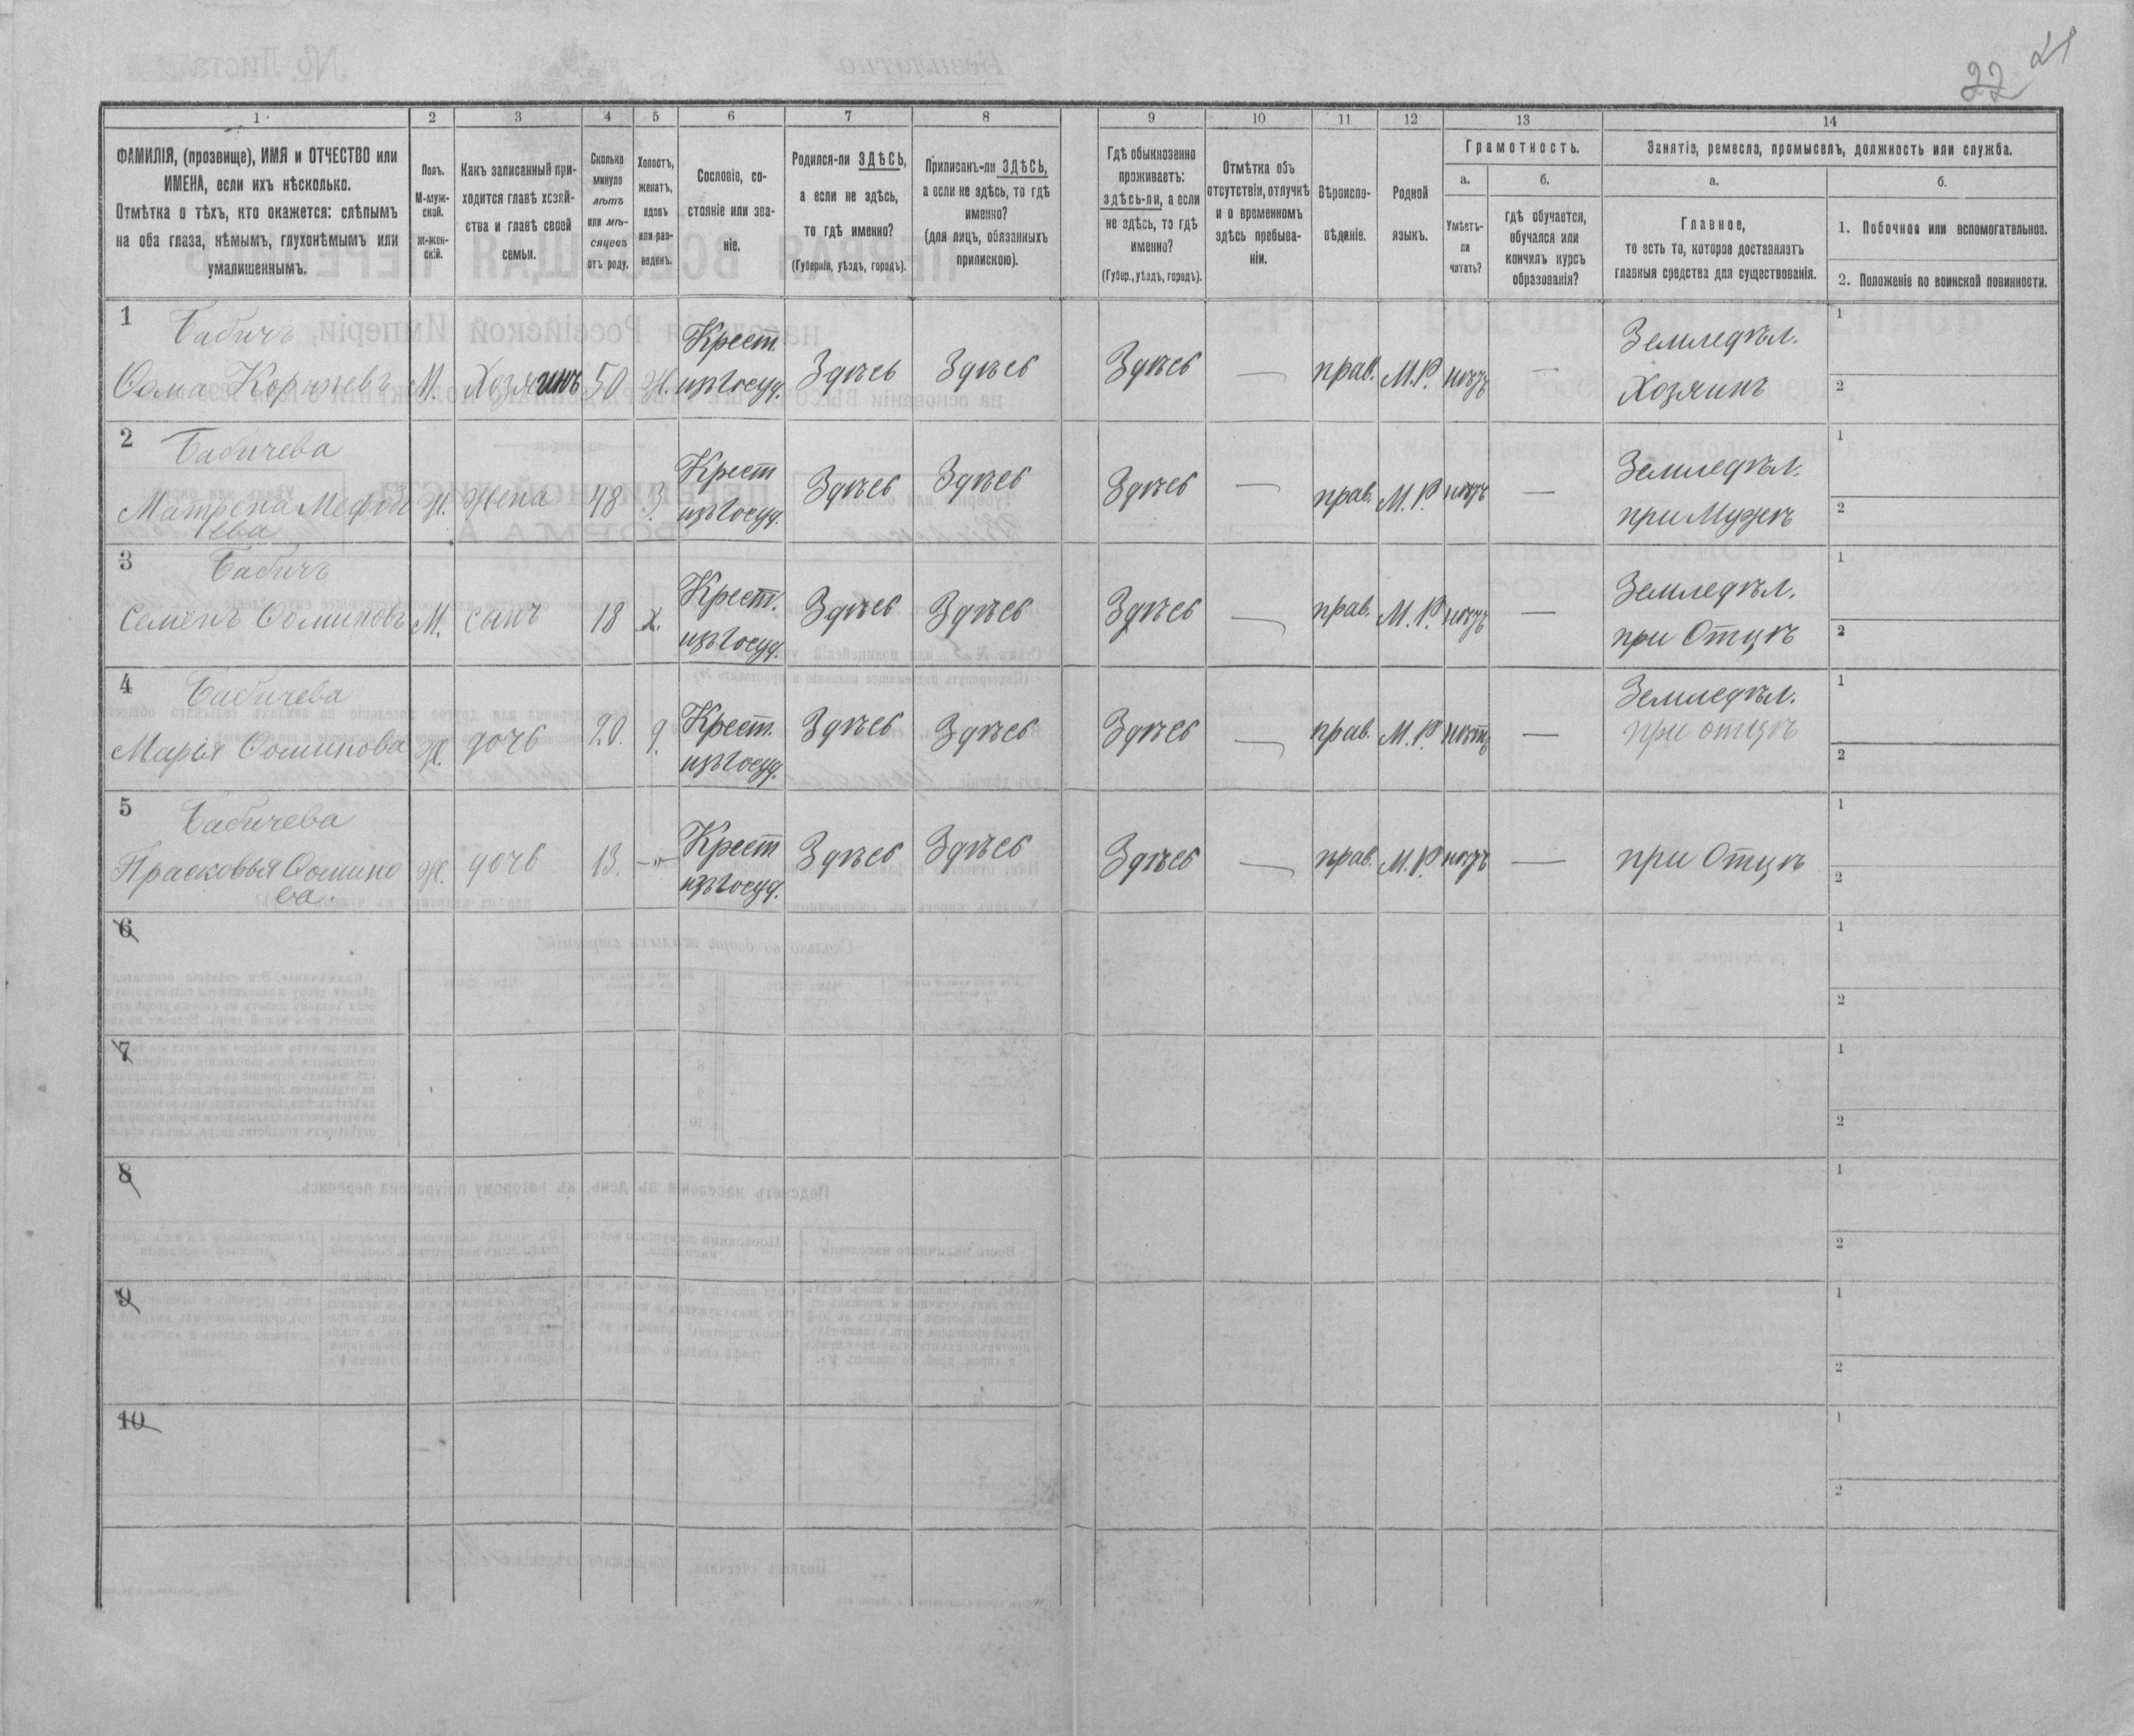 22 21
1 2 3 4 5 6 7 8 9 10 11 12 13 14
ФАМИЛІЯ, (прозвище), ИМЯ и ОТЧЕСТВО или
ИМЕНА, если ихъ нѣсколько.
Отмѣтка о тѣхъ, кто окажется: слѣпымъ
на оба глаза, нѣмымъ, глухонѣмымъ или
умалишеннымъ.
Полъ.
М-муж-
ской.
ж-жен-
скій.
Какъ записанный при-
ходится главѣ хозяй-
ства и главѣ своей
семьи.
Сколько
минуло
лѣтъ
или мѣ-
сяцевъ
отъ роду.
Холостъ,
женатъ,
вдовъ
или раз-
веденъ.
Сословіе, со-
стояніе или зва-
ніе.
Родился-ли ЗДѢСЬ,
а если не здѣсь,
то гдѣ именно?
(Губернія, уѣздъ, городъ).
Приписанъ-ли ЗДѢСЬ,
а если не здѣсь, то гдѣ
именно?
(для лицъ, обязанныхъ
припискою).
Гдѣ обыкновенно
проживаетъ:
здѣсь-ли, а если
не здѣсь, то гдѣ
именно?
(Губер., уѣздъ, городъ).
Отмѣтка объ
отсутствіи, отлучкѣ
и о временномъ
здѣсь пребыва-
ніи.
Вѣроиспо-
вѣданіе.
Родной
языкъ.
Грамотность.
а.
Умѣетъ-
ли
читать?
б.
гдѣ обучается,
обучался или
кончилъ курсъ
образованія?
Занятіе, ремесло, промыселъ, должность или служба.
а.
Главное,
то есть то, которое доставляетъ
главныя средства для существованія.
б.
1. Побочное или вспомогательное.
2. Положеніе по воинской повинности.
1 Бабичъ Крест. Земледѣл. 1
Ѳома Корнѣевъ М. Хозяинъ 50 Ж. изъ Госуд. Здѣсь Здѣсь Здѣсь — прав. М.Р. нѣтъ — Хозяинъ 2
2 Бабичева Крест Земледѣл. 1
Матрена Мефоді Ж. жена 48 З. изъ Госуд. Здѣсь Здѣсь Здѣсь — прав. М.Р. нѣтъ — при Мужѣ 2
ева
3 Бабичъ Крест. Земледѣл. 1
Семенъ Ѳоминовъ М. сынъ 18 х. изъ Госуд. Здѣсь Здѣсь Здѣсь — прав. М.Р. нѣтъ — при Отцѣ 2
4 Бабичева Крест. Земледѣл. 1
Марія Ѳоминова Ж. дочь 20. д. изъ Госуд. Здѣсь Здѣсь Здѣсь — прав. М.Р. нѣтъ — при отцѣ 2
5 Бабичева Крест 1
Прасковья Ѳомино Ж. дочь 13. -"- изъ Госуд. Здѣсь Здѣсь Здѣсь — прав. М.Р. нѣтъ — при Отцѣ 2
ва.
6 1
2
7 1
2
8 1
2
9 1
2
10 1
2